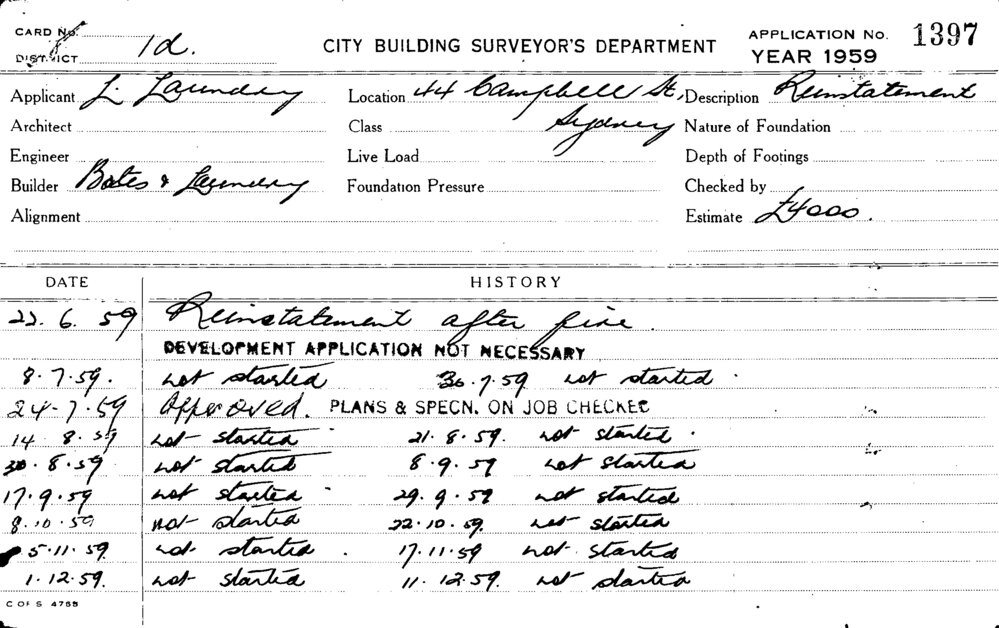 CARD No.
DISTRICT 1d.
CITY BUILDING SURVEYOR'S DEPARTMENT
APPLICATION No. 1397
YEAR 1959
Applicant L. Laundry Location 44 Campbell St, Description Reinstatement
Architect Class Sydney Nature of Foundation
Engineer Live Load Depth of Footings
Builder Bates & Laundry Foundation Pressure Checked by
Alignment Estimate £4000.
DATE HISTORY
22. 6. 59 Reinstatement after fire.
DEVELOPMENT APPLICATION NOT NECESSARY
8.7.59. not started 30.7.59 not started.
24-7.59 Approved. PLANS & SPECN. ON JOB CHECKED
14 8.59 not started 21.8.59. not started.
30.8.59 not started 8.9.59 not started
17.9.59 not started 29.9.59 not started
8.10.59 not started 22.10.59. not started
5.11.59. not started. 17.11.59 not started
1.12.59. not started 11.12.59. not started
C OF S 4755